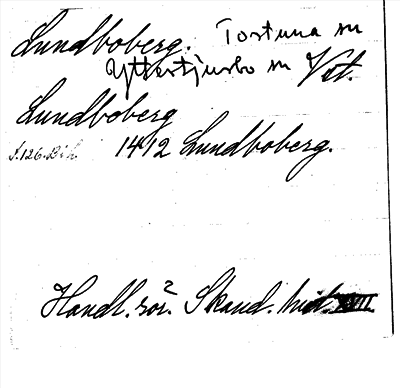 Lundboberg. Tortuna sn
Yttertjurbo sn Vstl.
Lundboberg
s. 126. Bih. 1412 Lundboberg.
Handl. rör. Skand. hist. XVII.